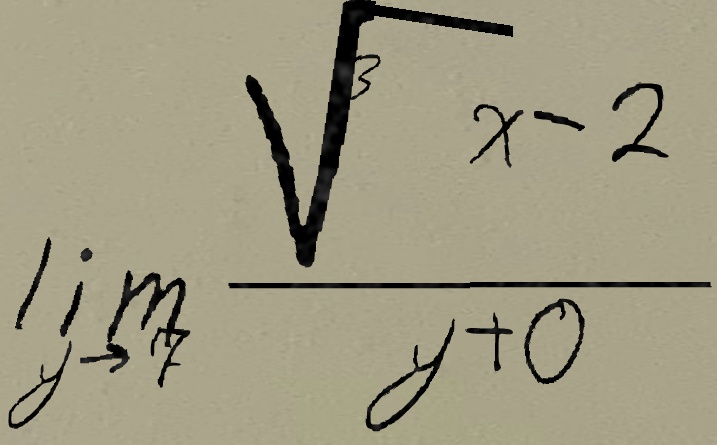 lim y→7 \frac{\sqrt[3]{x-2}}{y+0}